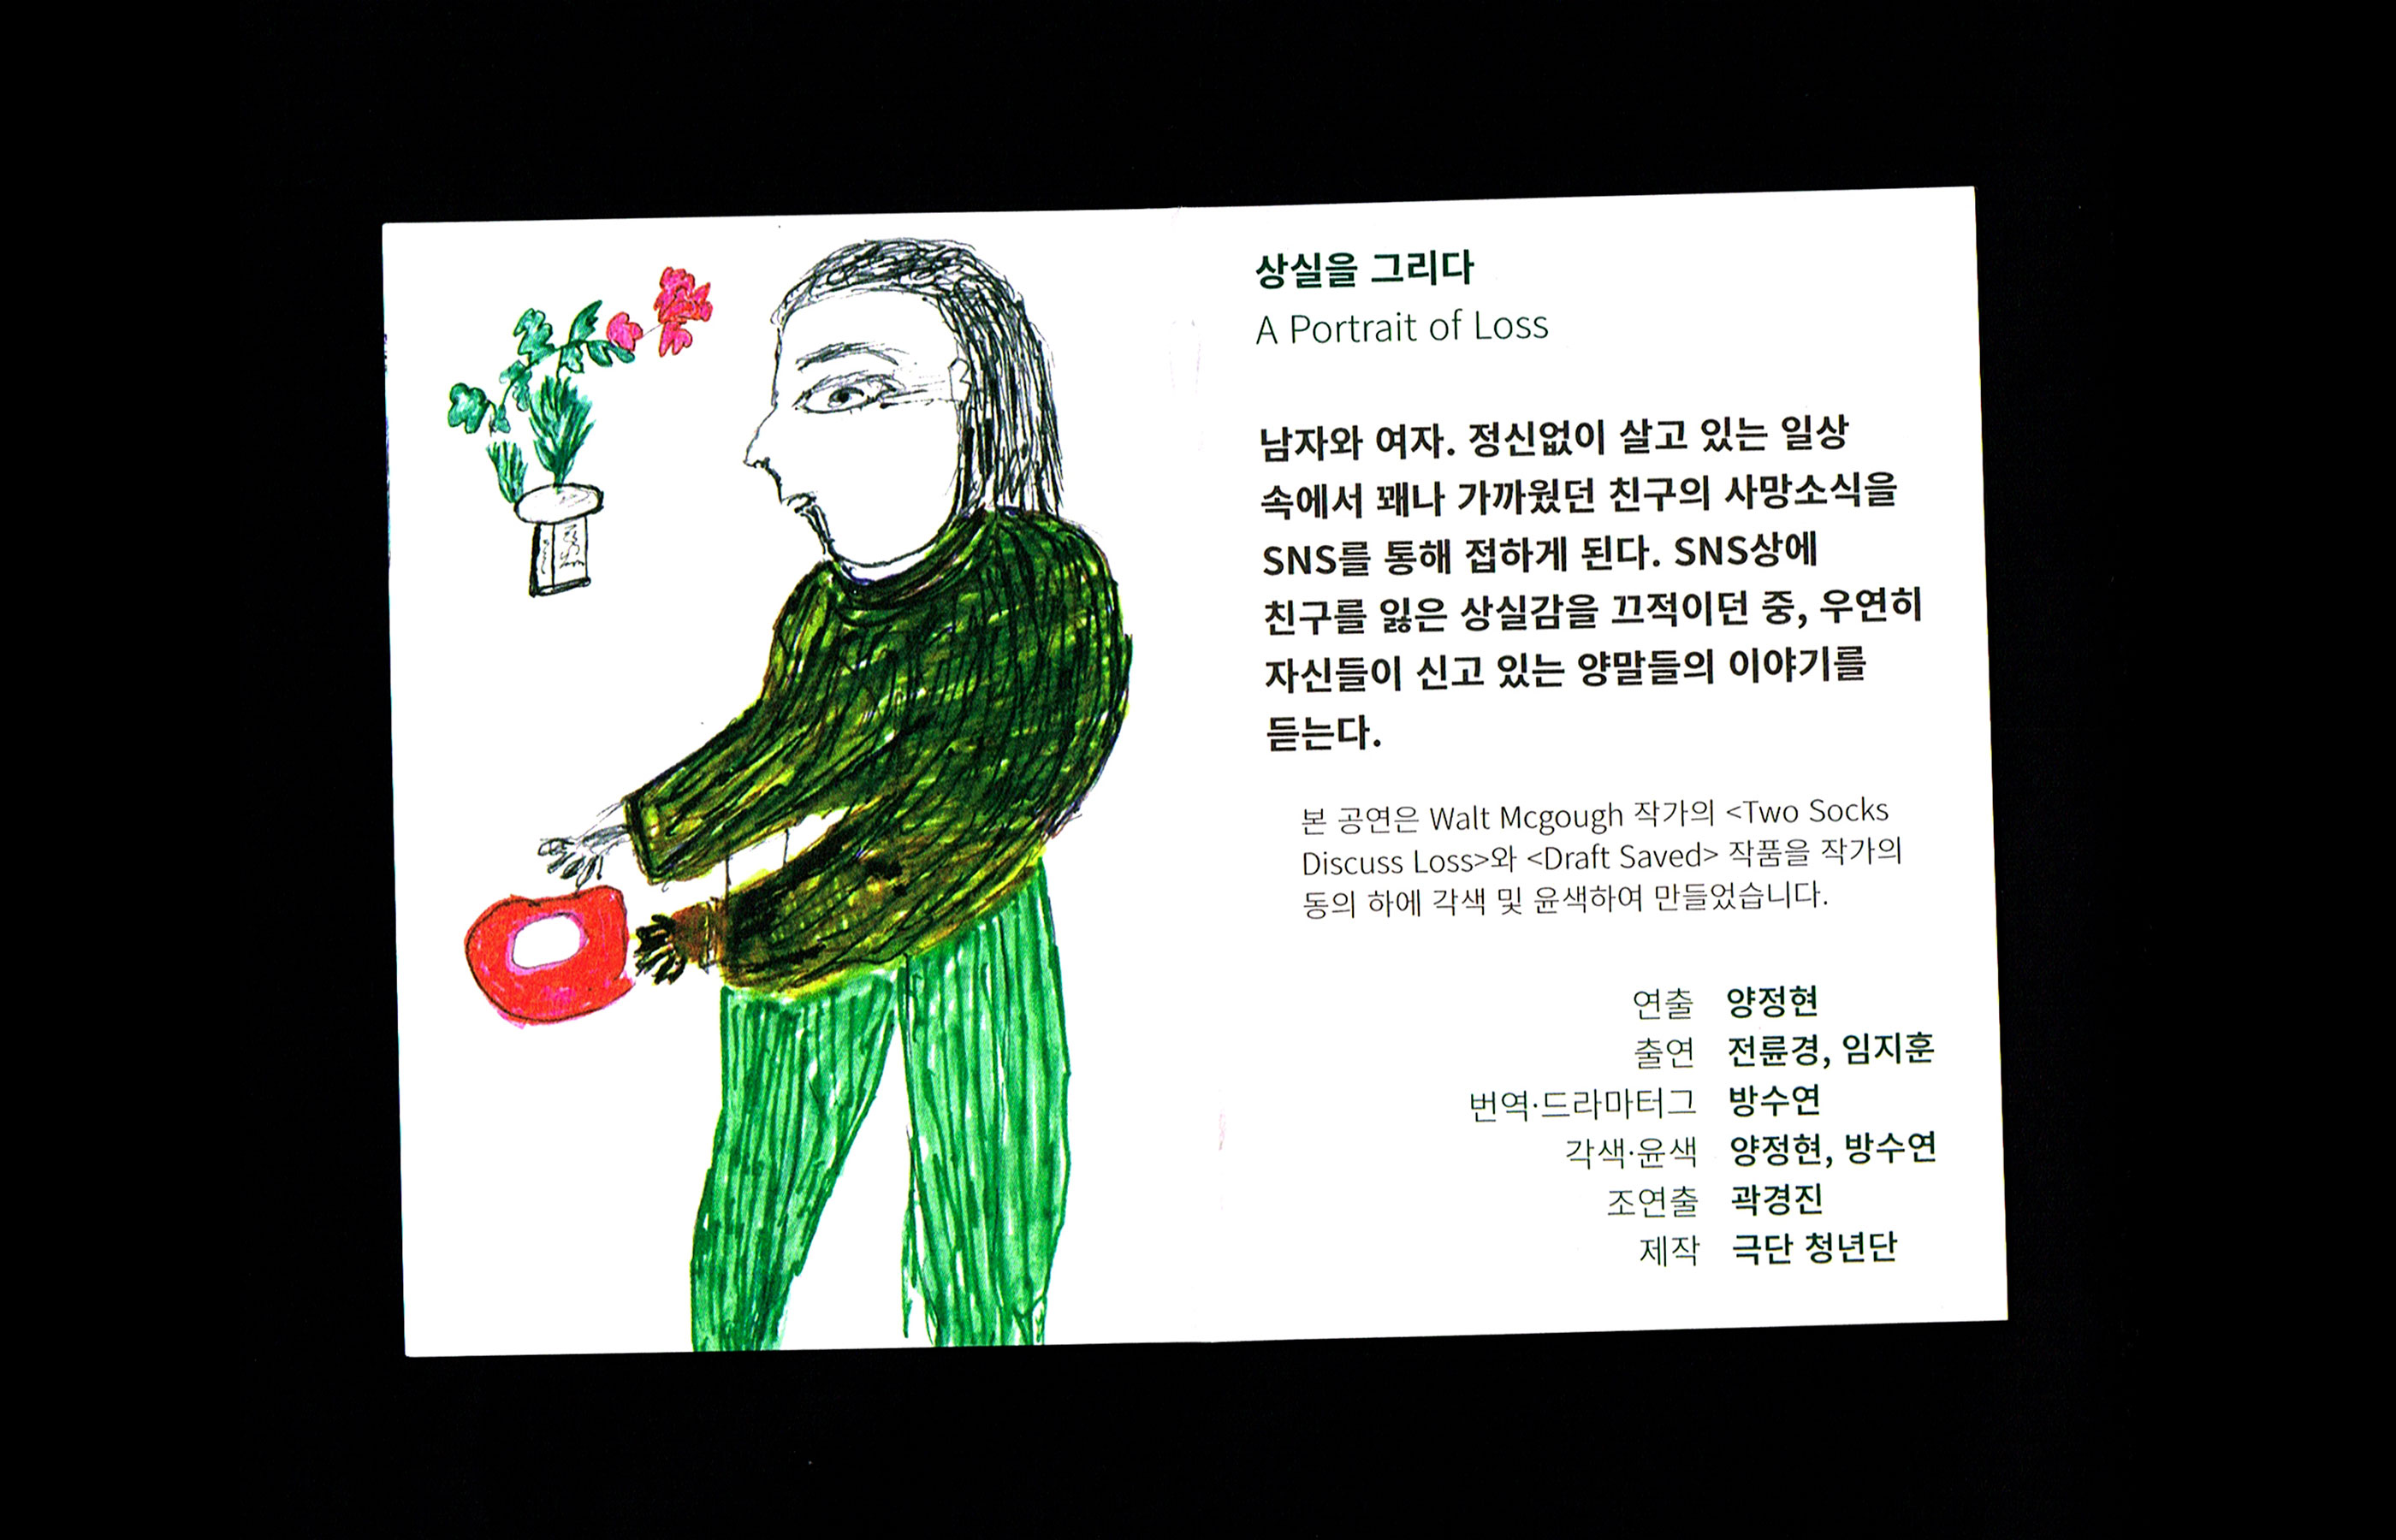 상실을 그리다
A Portrait of Loss
남자와 여자. 정신없이 살고 있는 일상
속에서 꽤나 가까웠던 친구의 사망소식을
SNS를 통해 접하게 된다. SNS상에
친구를 잃은 상실감을 끄적이던 중, 우연히
자신들이 신고 있는 양말들의 이야기를
듣는다.
본 공연은 Walt Mcgough 작가의 <Two Socks
Discuss Loss>와 <Draft Saved> 작품을 작가의
동의 하에 각색 및 윤색하여 만들었습니다.
연출 양정현
출연 전륜경, 임지훈
번역·드라마터그 방수연
각색·윤색 양정현, 방수연
조연출 곽경진
제작 극단 청년단